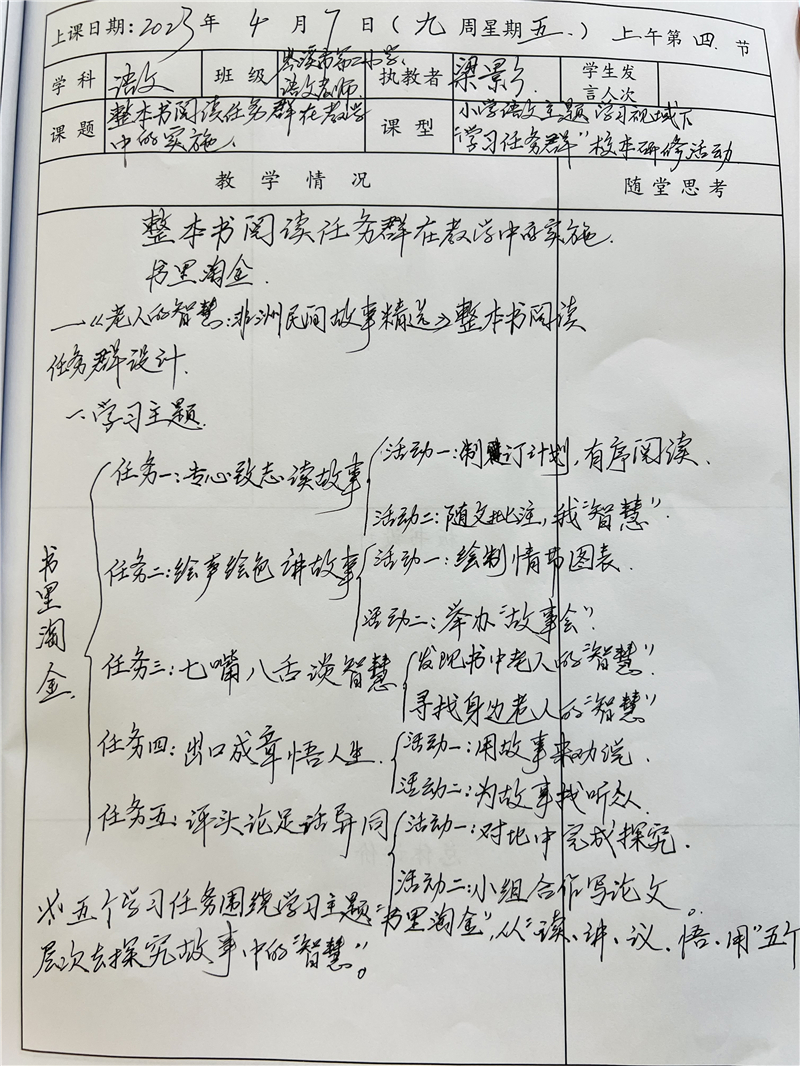 上课日期：2023年 4 月 7 日（九 周星期五）上午第四 节
学科 语文 班级 市第二小学 语文老师 执教者 梁景 学生发言人次
课题 整本书阅读任务群在教学中的实施. 课型 小学语文主题学习视域下"学习任务群"校本研修活动
教 学 情 况 随堂思考
整本书阅读任务群在教学中的实施.
书里淘金.
一《老人的智慧:非洲民间故事精选》整本书阅读
任务群设计.
一、学习主题.
书里淘金.
任务一:专心致志读故事
活动一:制订计划,有序阅读.
活动二:随文批注,我"智慧".
任务二:绘声绘色讲故事
活动一:绘制情节图表.
活动二:举办"故事会".
任务三:七嘴八舌谈智慧
发现书中老人的"智慧".
寻找身边老人的"智慧"
任务四:出口成章悟人生.
活动一:用故事来劝说.
活动二:为故事找听众.
任务五:评头论足话异同
活动一:对比中完成探究.
活动二:小组合作写论文.
※五个学习任务围绕学习主题"书里淘金",从"读、讲、议、悟、用"五个
层次去探究故事中的"智慧"。